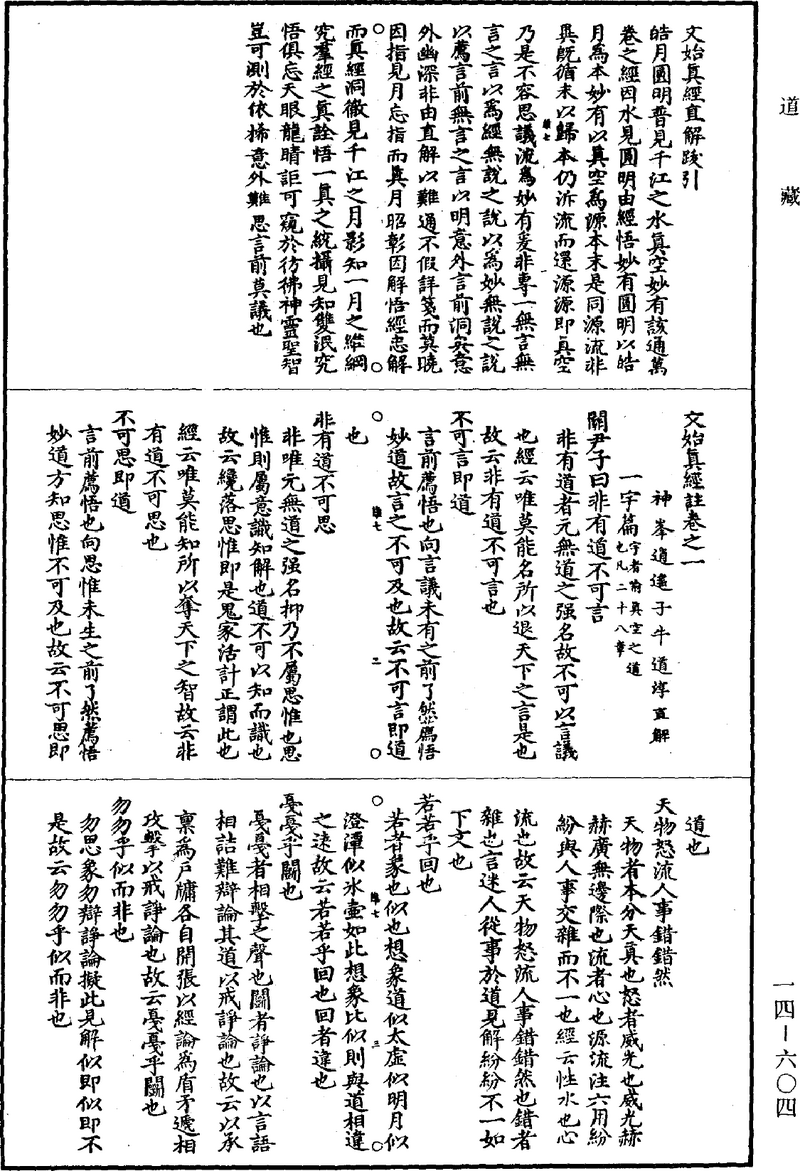 道藏
文始真經直解跋引
皓月圓明普見千江之水真空妙有該通萬
卷之經因水見圓明由經悟妙有圓明以皓
月為本妙有以真空為源本末是同源流非
異既循末以歸本仍泝流而還源源即真空
乃是不容思議流為妙有爰非專一無言無
言之言以為經無說之說以為妙無說之說
以薦言前無言之言以明意外言前洞矣意
外幽深非由直解以難通不假詳箋而莫曉
因指見月忘指而真月昭彰因解悟經忠解
而真經洞徹見千江之月影知一月之維綱
究羣經之真詮悟一真之統攝見知雙泯究
悟俱忘天眼龍睛詎可窺於彷彿神靈聖智
豈可測於依稀意外難思言前莫議也
文始真經註卷之一
神峯逍遙子牛道淳直解
一宇篇宇者喻真空之道也凡二十八章
關尹子曰非有道不可言
非有道者元無道之强名故不可以言議
也經云唯莫能名所以退天下之言是也
故云非有道不可言也
不可言即道
言前薦悟也向言議未有之前了然薦悟
妙道故言之不可及也故云不可言即道
也
非有道不可思
非唯元無道之强名抑乃不屬思惟也思
惟則屬意識知解也道不可以知而識也
故云纔落思惟即是鬼家活計正謂此也
經云唯莫能知所以奪天下之智故云非
有道不可思也
不可思即道
言前薦悟也向思惟未生之前了然薦悟
妙道方知思惟不可及也故云不可思即
道也
天物怒流人事錯錯然
天物者本分天真也怒者威光也威光赫
赫廣無邊際也流者心也源流注六用紛
紛與人事交雜而不一也經云性水也心
流也故云天物怒流人事錯錯然也錯者
雜也言迷人從事於道見解紛紛不一如
下文也
若若乎回也
若者象也似也想象道似太虛似明月似
澄潭似氷壺如此想象比似則與道相違
之遠故云若若乎回也回者違也
戞戞乎鬭也
戞戞者相擊之聲也鬭者諍論也以言語
相詰難辯論其道以戒諍論也故云以承
稟為戶牖各自開張以經論為盾矛遞相
攻擊以戒諍論也故云戞戞乎鬭也
勿勿乎似而非也
勿思象勿辯諍論擬此見解似即似即不
是故云勿勿乎似而非也
一四—六〇四